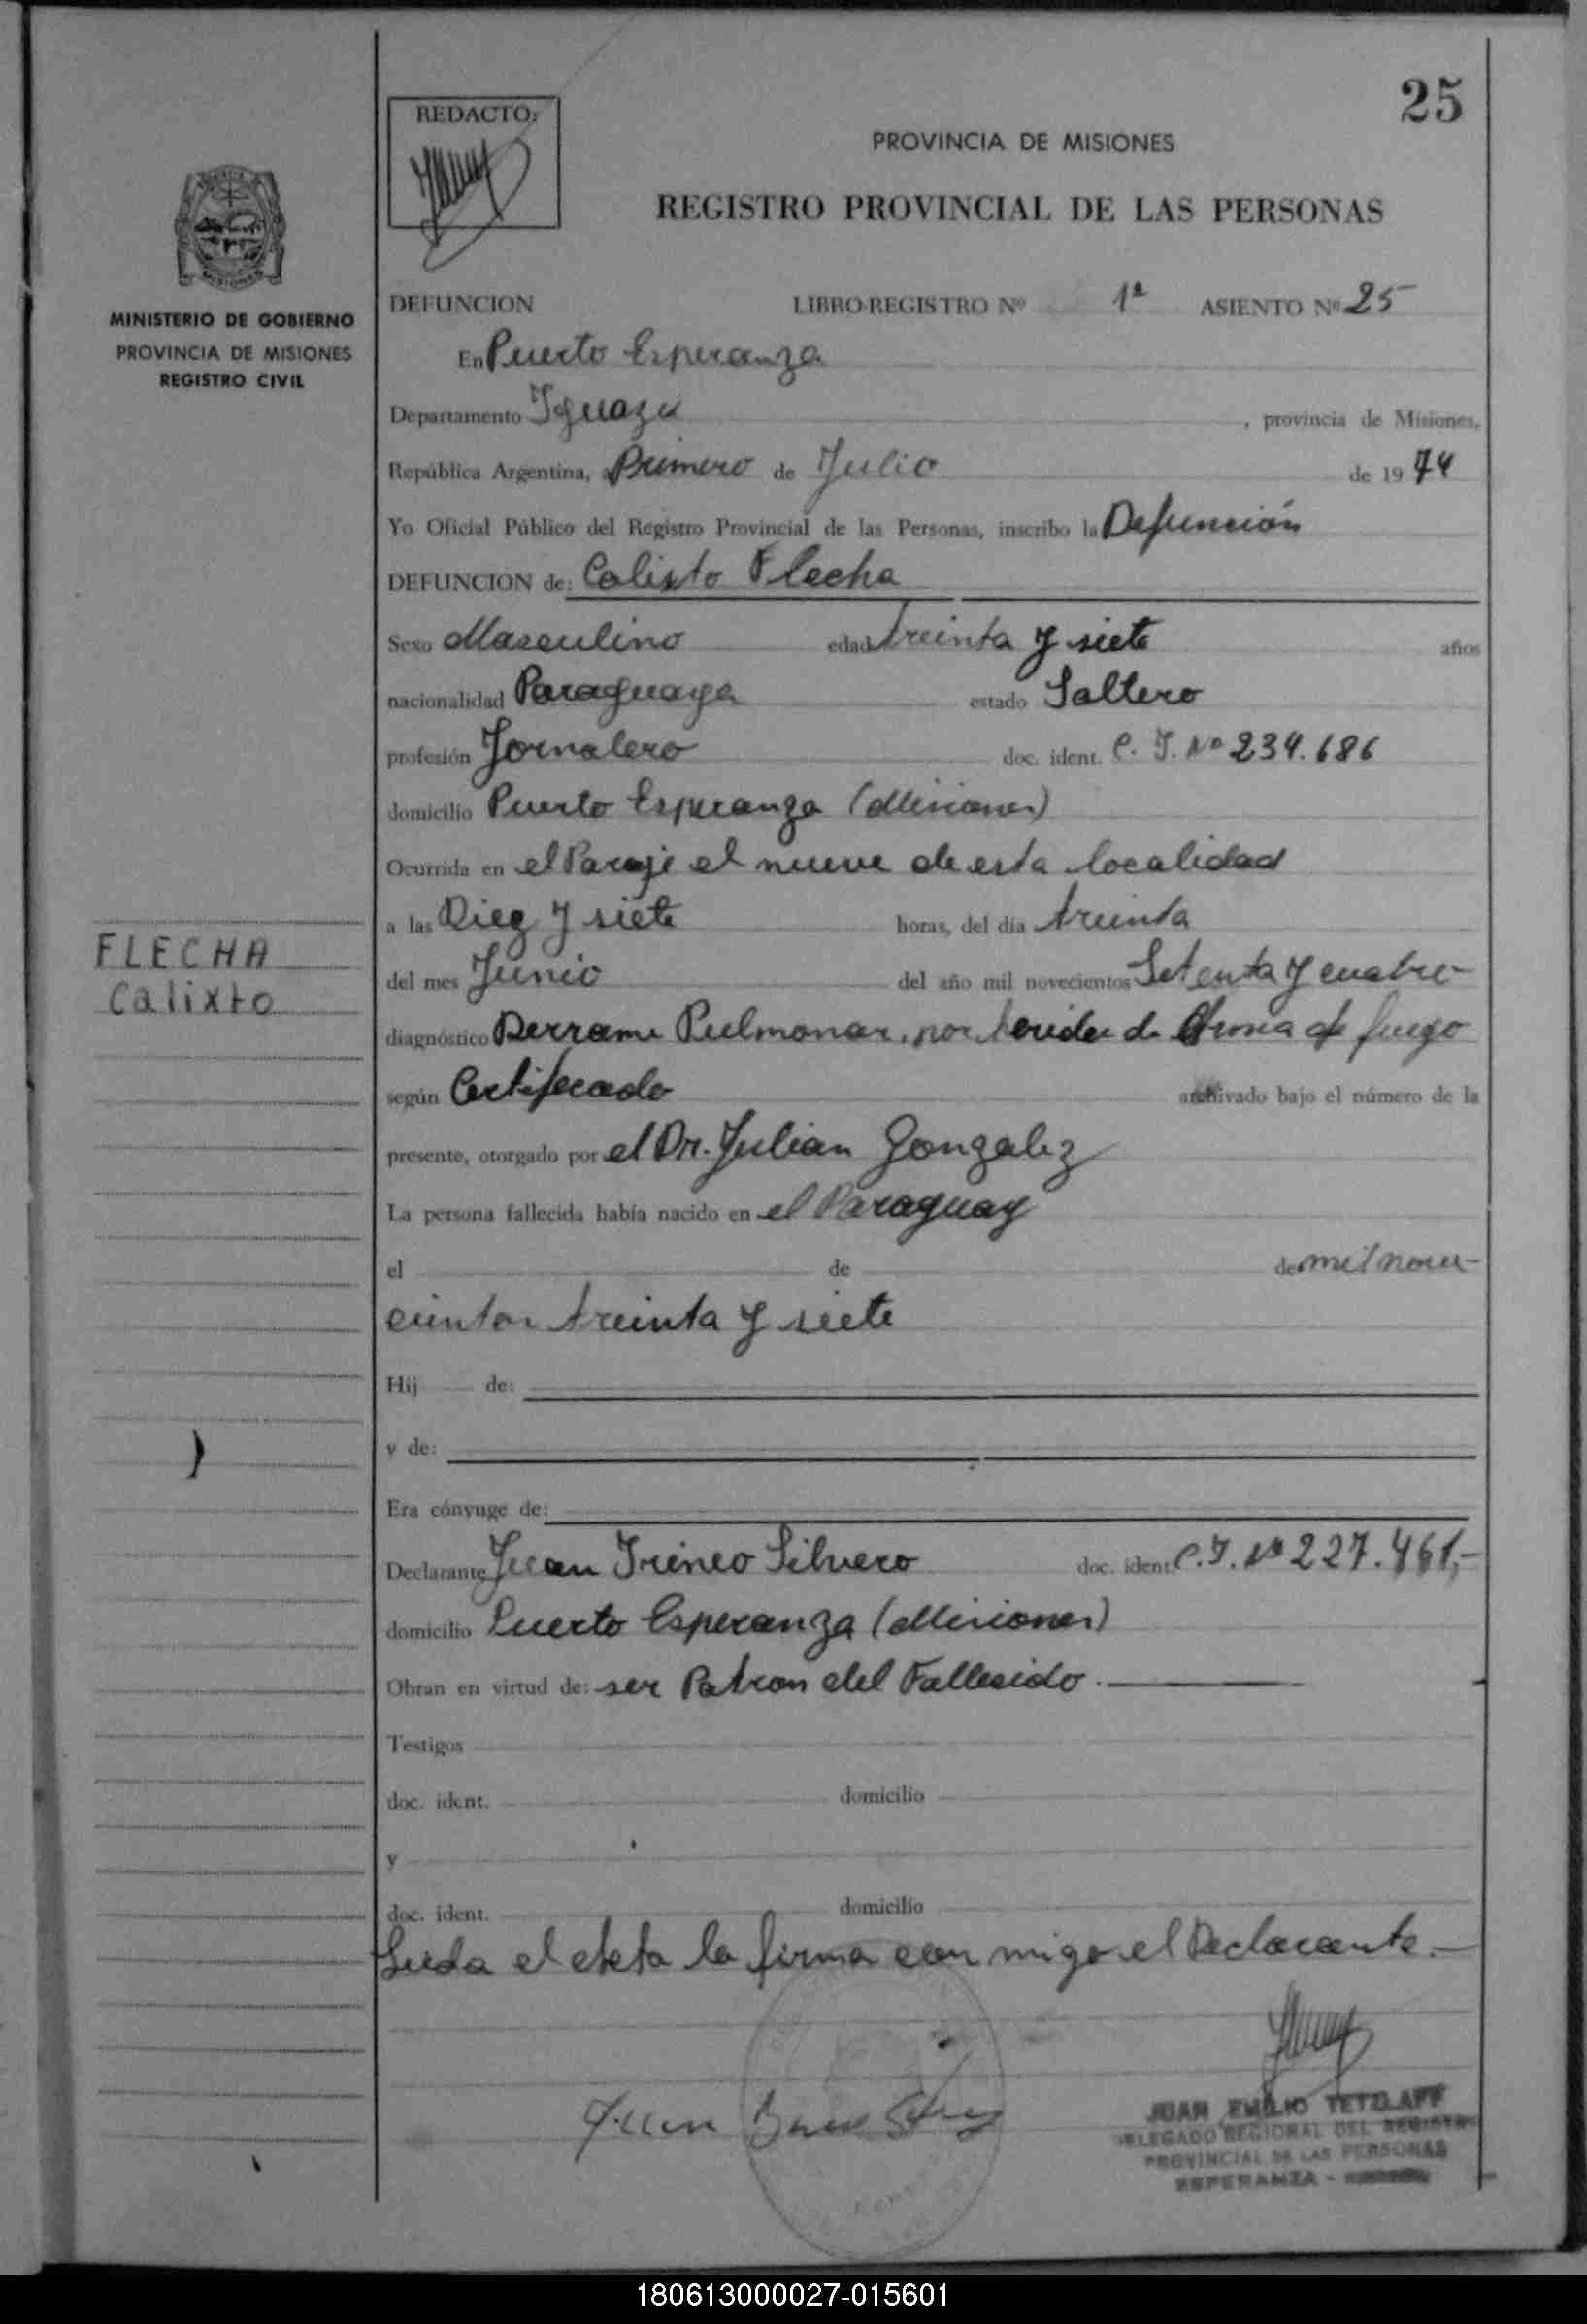 25
REDACTO:
PROVINCIA DE MISIONES
REGISTRO PROVINCIAL DE LAS PERSONAS
MISIONES
MINISTERIO DE GOBIERNO
PROVINCIA DE MISIONES
REGISTRO CIVIL
DEFUNCION LIBRO-REGISTRO Nº 1ª ASIENTO Nº 25
En Puerto Esperanza
Departamento Iguazu , provincia de Misiones,
República Argentina, a Primero de Julio de 1974
Yo Oficial Público del Registro Provincial de las Personas, inscribo la Defunción
DEFUNCION de: Calixto Flecha
Sexo Masculino edad treinta y siete años
nacionalidad Paraguaya estado Soltero
profesión Jornalero doc. ident. C. I. Nº 234.686
domicilio Puerto Esperanza (Misiones)
Ocurrida en el Paraje el nueve de esta localidad
a las Diez y siete horas, del día treinta
FLECHA
Calixto
del mes Junio del año mil novecientos Setenta y cuatro
diagnóstico Derrame Pulmonar, por heridas de Arma de fuego
según Certificado archivado bajo el número de la
presente, otorgado por el Dr. Julian Gonzalez
La persona fallecida había nacido en el Paraguay
el de de mil nove-
cientos treinta y siete
Hij de:
y de:
Era cónyuge de:
Declarante Juan Irineo Silvero doc. ident. C. I. Nº 227.461,-
domicilio Puerto Esperanza (Misiones)
Obran en virtud de: ser Patron del Fallecido.
Testigos
doc. ident. domicilio
y
doc. ident. domicilio
Leida el acta la firma con migo el Declarante.-
Juan
JUAN EMILIO TETZLAFF
DELEGADO REGIONAL DEL REGISTRO
PROVINCIAL DE LAS PERSONAS
ESPERANZA -
180613000027-015601